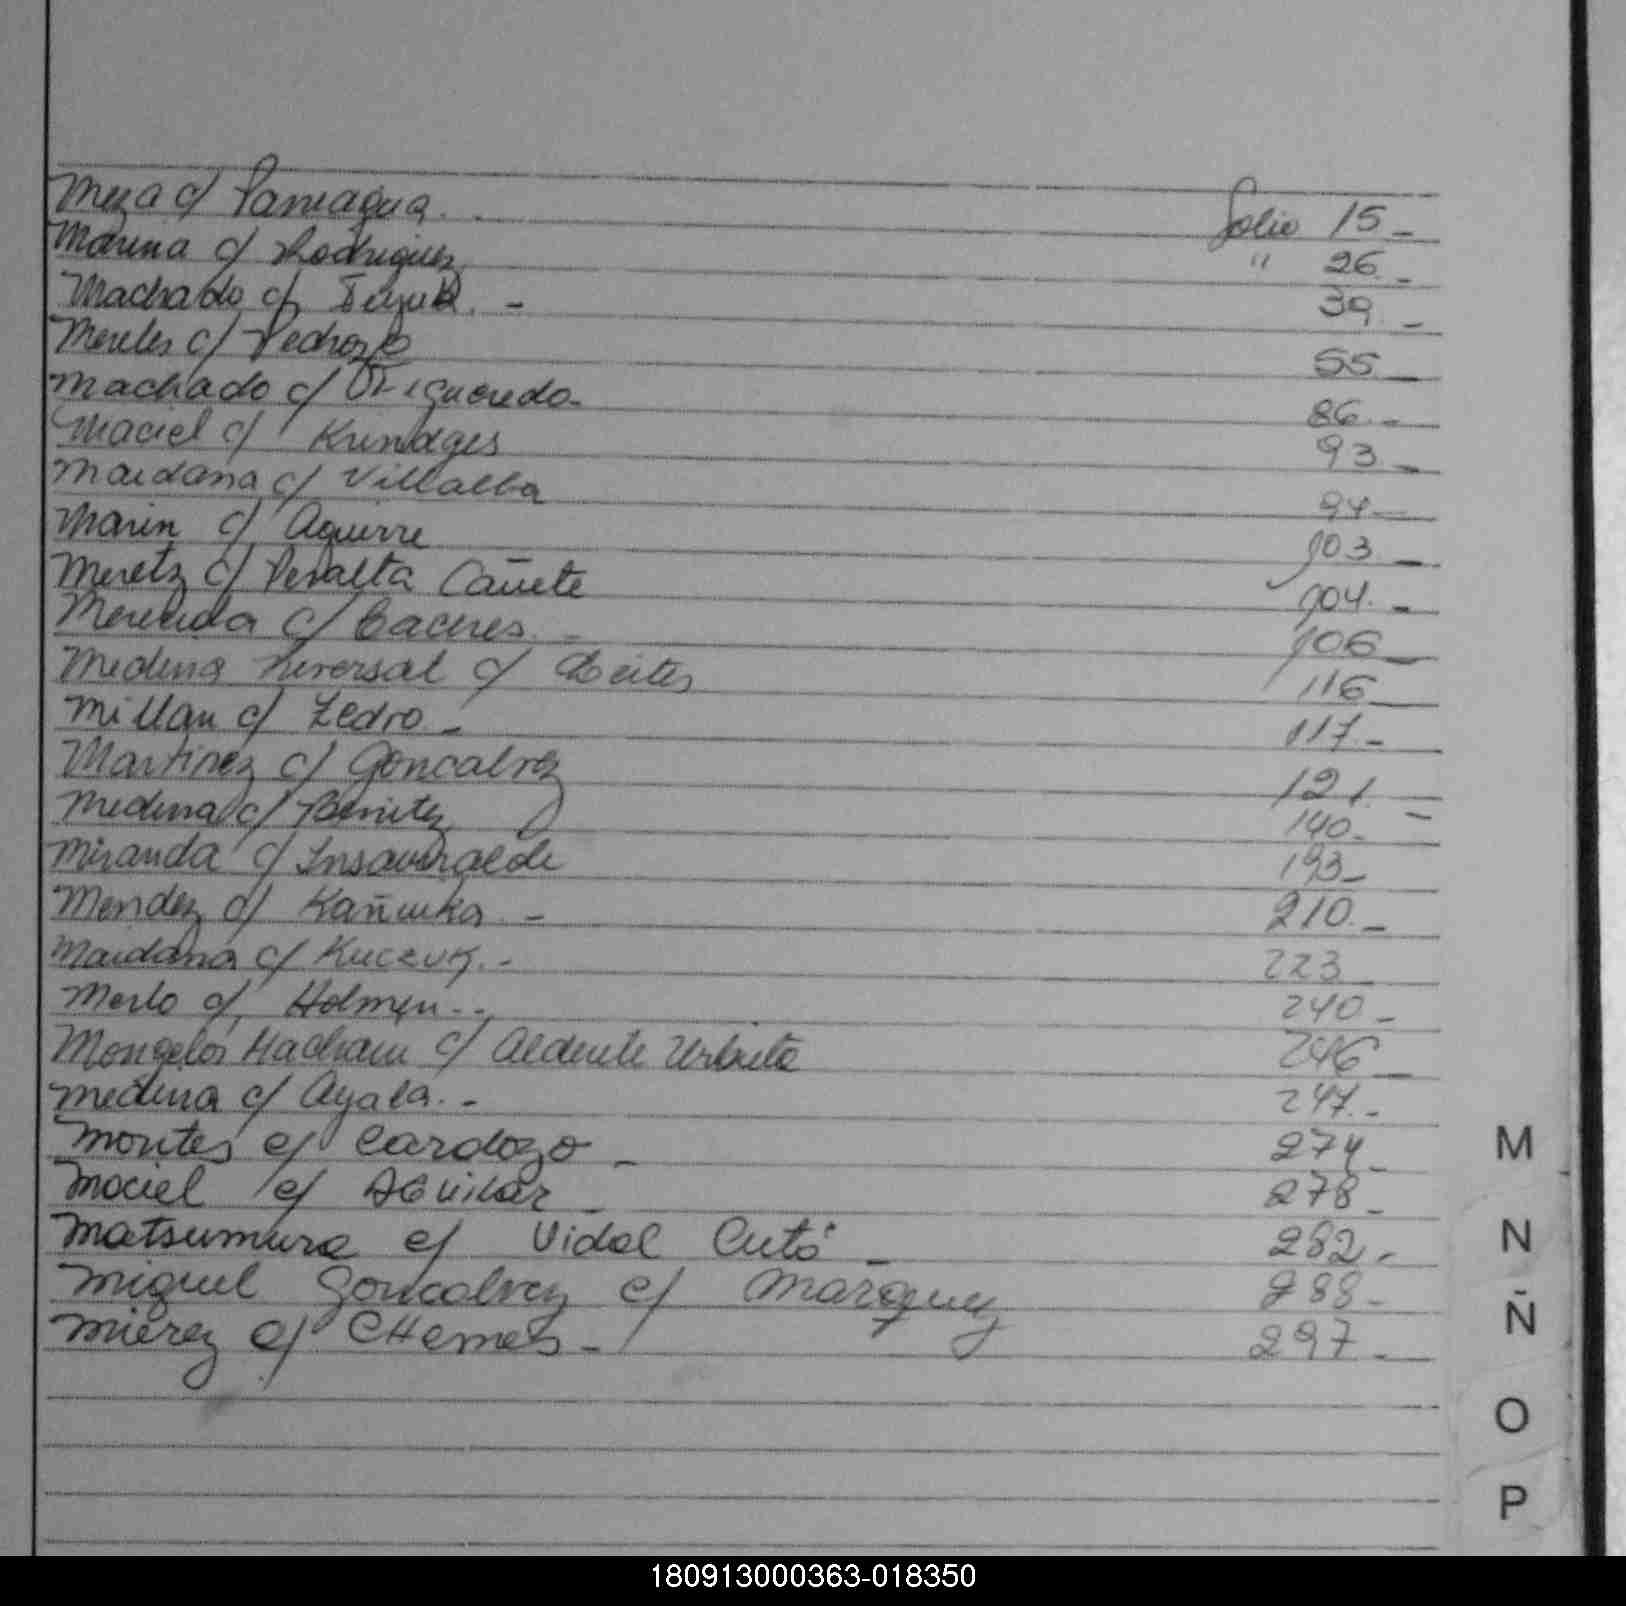 Meza c/ Paniagua. Folio 15_
Marina c/ Rodriguez " 26._
Machado c/ 39._
Mereles c/ Pedrozo 55_
Machado c/ Figueredo_ 86._
Maciel c/ Kundges 93_
Maidana c/ Villalba 94_
Marin c/ Aguirre 103_
Meretz c/ Peralta Cañete 104._
Merenda c/ Caceres._ 106_
Medina c/ 116_
Millan c/ Zedro_ 117._
Martinez c/ Goncalvez 121._
Medina c/ Benitez 140_
Miranda c/ Insaurralde 193_
Mendez c/ Kañuka._ 210._
Maidana c/ Kuczuk._ 223_
Merlo c/ Holmen._ 240_
Mongelos c/ Alderete Urbieta 246_
Medina c/ Ayala._ 247._
Montes c/ Cardozo_ 274_
Maciel c/ Aguilar_ 278_
Matsumura c/ Vidal Cutó_ 282._
Miguel Goncalvez c/ Marquez 288_
Mierez c/ CHemes_ 297_
M
N
Ñ
O
P
180913000363-018350